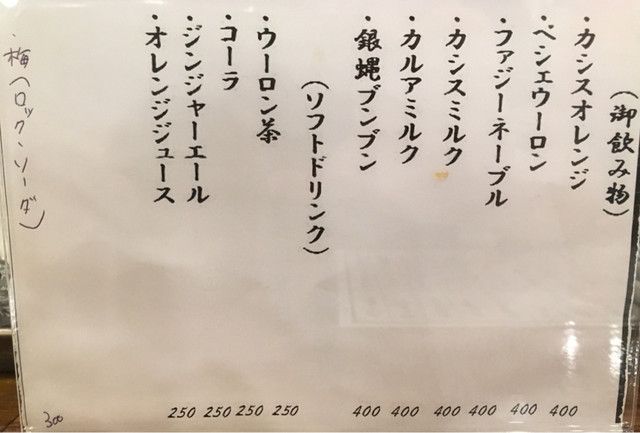 (御飲み物)
・カシスオレンジ 400
・ペシェウーロン 400
・ファジーネーブル 400
・カシスミルク 400
・カルアミルク 400
・銀蝿ブンブン 400
(ソフトドリンク)
・ウーロン茶 250
・コーラ 250
・ジンジャーエール 250
・オレンジジュース 250
・梅(ロック・ソーダ) 300